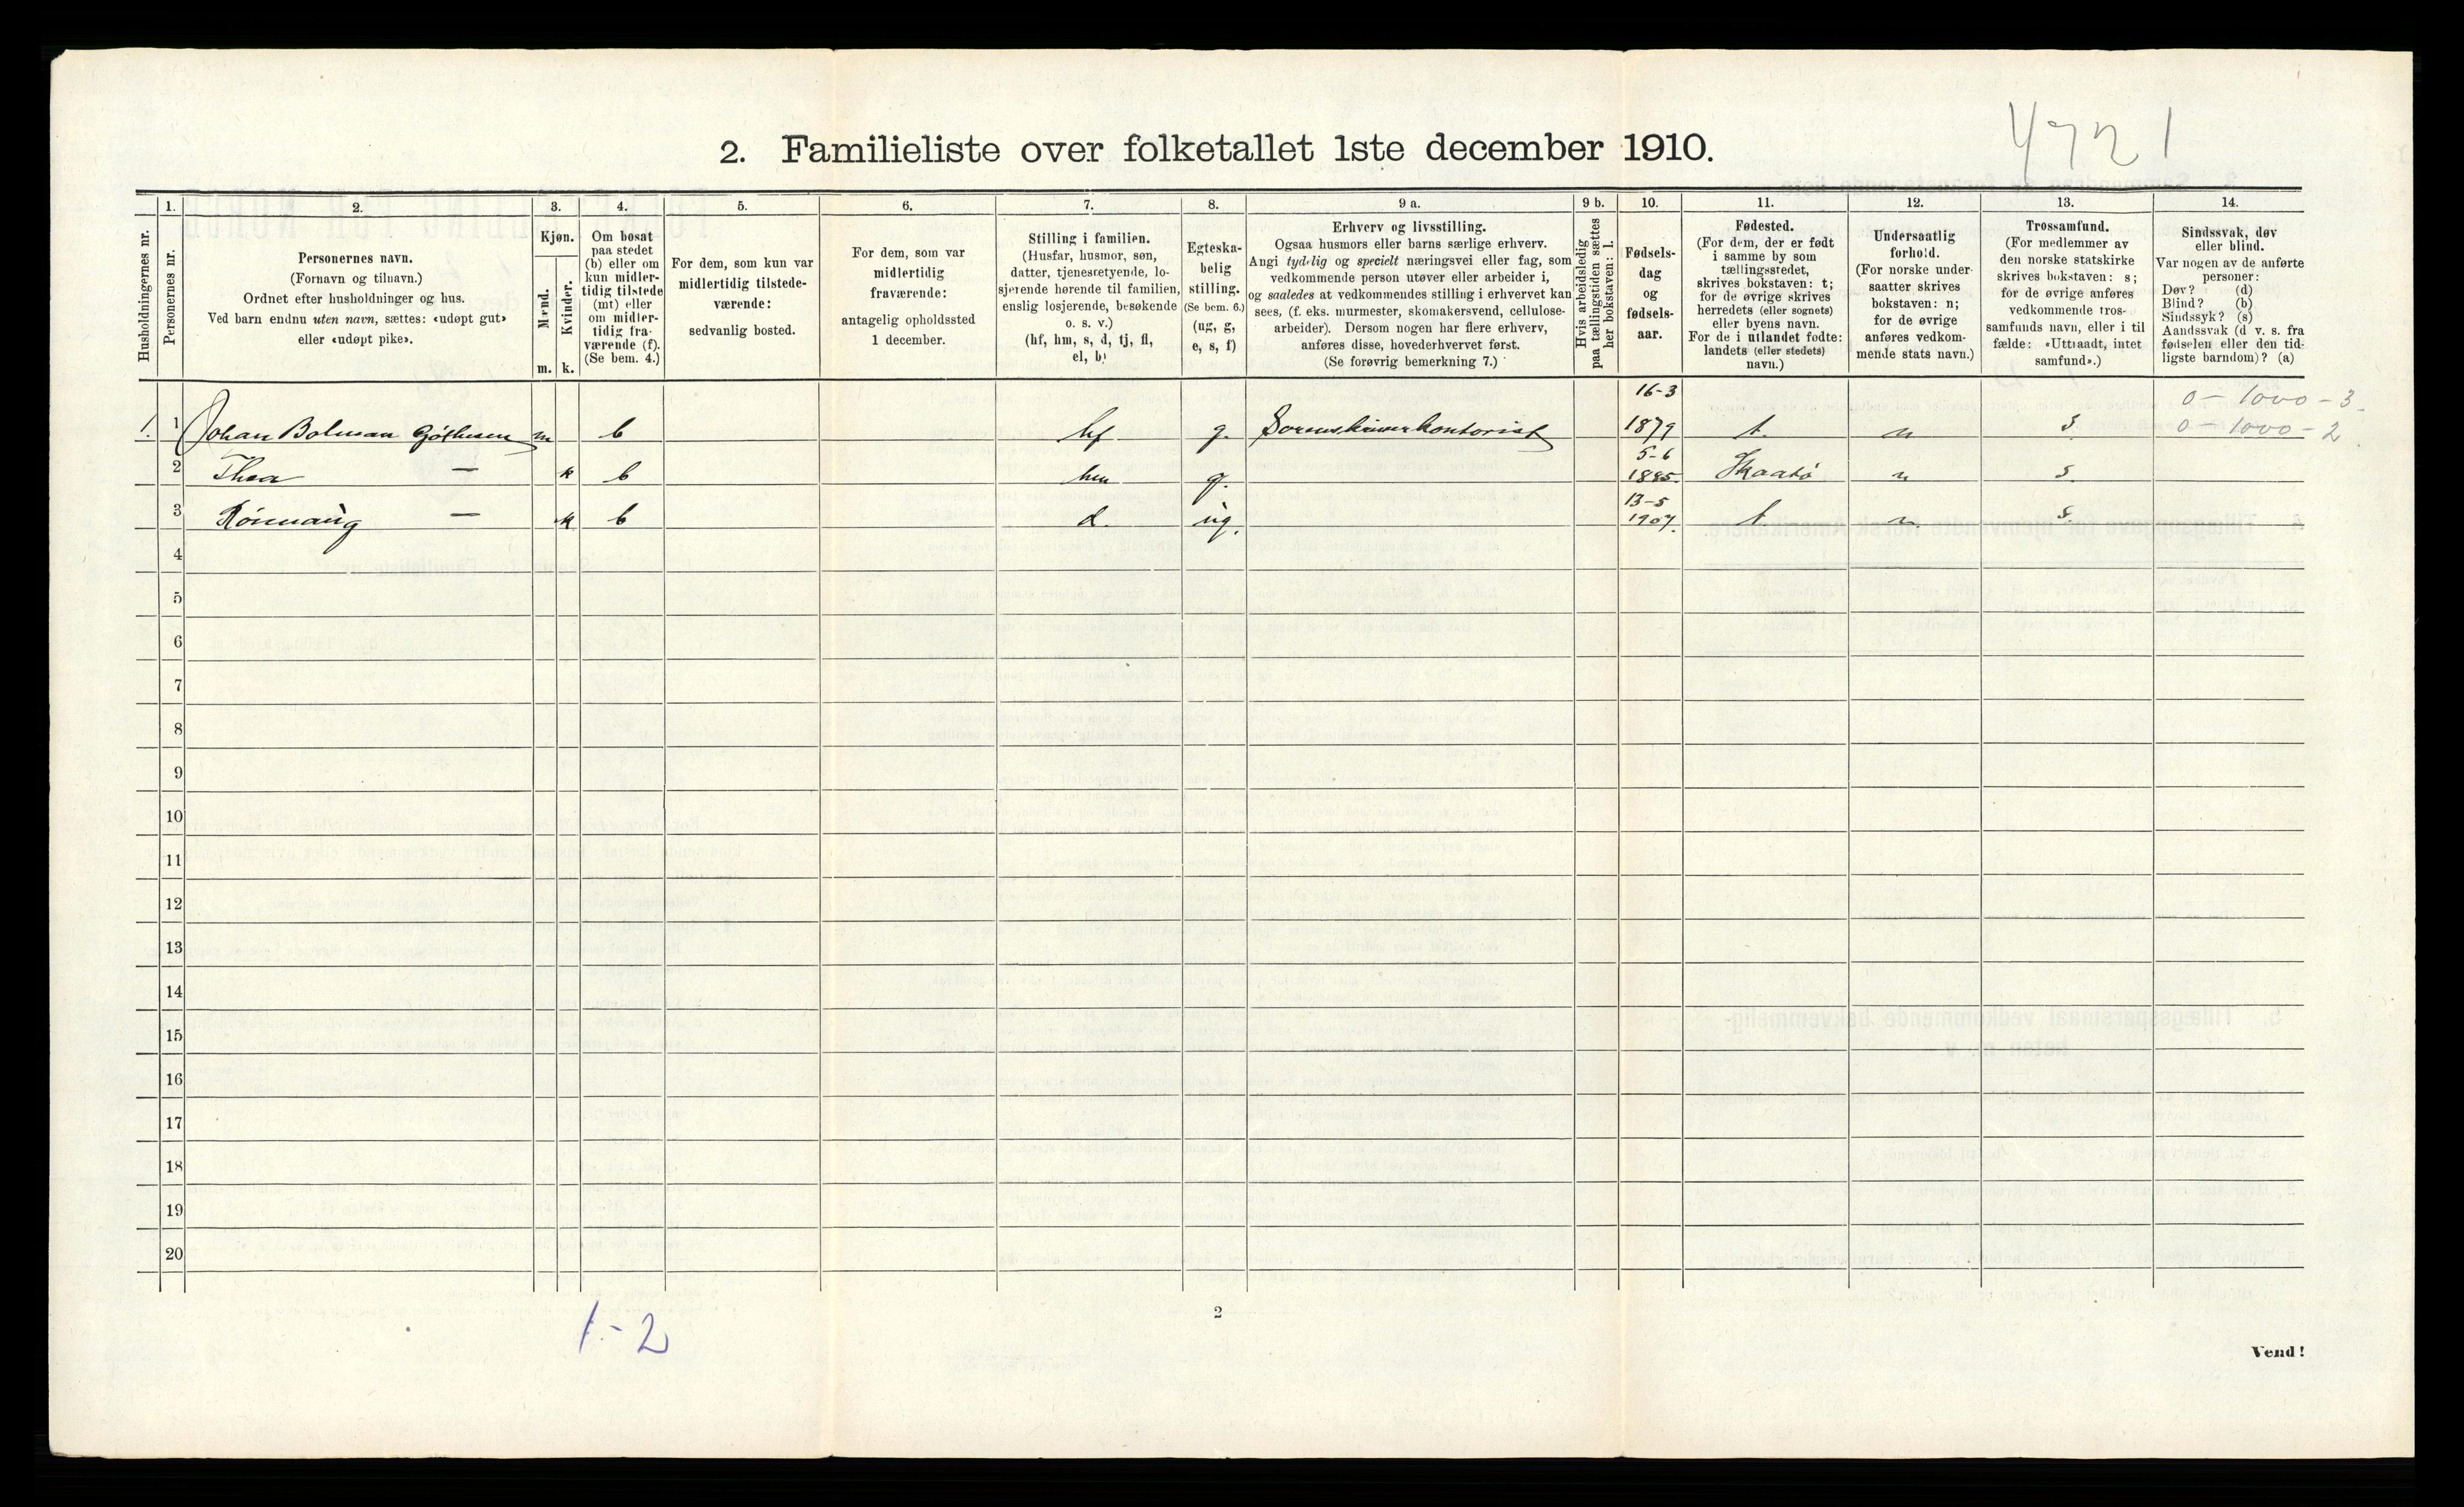 4721
2. Familieliste over folketallet 1ste december 1910.
Husholdningernes nr.
1.
Personernes nr.
2.
Personernes navn.
(Fornavn og tilnavn.)
Ordnet efter husholdninger og hus.
Ved barn endnu uten navn, sættes: «udøpt gut»
eller «udøpt pike».
3.
Kjøn.
Mænd.
Kvinder.
m. k.
4.
Om bosat
paa stedet
(b) eller om
kun midler-
tidig tilstede
(mt) eller
om midler-
tidig fra-
værende (f).
(Se bem. 4.)
5.
For dem, som kun var
midlertidig tilstede-
værende:
sedvanlig bosted.
6.
For dem, som var
midlertidig
fraværende:
antagelig opholdssted
1 december.
7.
Stilling i familien.
(Husfar, husmor, søn,
datter, tjenestetyende, lo-
sjerende hørende til familien,
enslig losjerende, besøkende
o. s. v.)
(hf, hm, s, d, tj, fl,
el, b)
8.
Egteska-
belig
stilling.
(Se bem. 6.)
(ug, g,
e, s, f)
9 a.
Erhverv og livsstilling.
Ogsaa husmors eller barns særlige erhverv.
Angi tydelig og specielt næringsvei eller fag, som
vedkommende person utøver eller arbeider i,
og saaledes at vedkommendes stilling i erhvervet kan
sees, (f. eks. murmester, skomakersvend, cellulose-
arbeider). Dersom nogen har flere erhverv,
anføres disse, hovederhvervet først.
(Se forøvrig bemerkning 7.)
9 b.
Hvis arbeidsledig
paa tællingstiden sættes
her bokstaven: l.
10.
Fødsels-
dag
og
fødsels-
aar.
11.
Fødested.
(For dem, der er født
i samme by som
tællingsstedet,
skrives bokstaven: t;
for de øvrige skrives
herredets (eller sognets)
eller byens navn.
For de i utlandet fødte:
landets (eller stedets)
navn.)
12.
Undersaatlig
forhold.
(For norske under-
saatter skrives
bokstaven: n;
for de øvrige
anføres vedkom-
mende stats navn.)
13.
Trossamfund.
(For medlemmer av
den norske statskirke
skrives bokstaven: s;
for de øvrige anføres
vedkommende tros-
samfunds navn, eller i til
fælde: «Uttraadt, intet
samfund».)
14.
Sindssvak, døv
eller blind.
Var nogen av de anførte
personer:
Døv? (d)
Blind? (b)
Sindssyk? (s)
Aandssvak (d v. s. fra
fødselen eller den tid-
ligste barndom)? (a)
1. 1 Johan Bolman Göthesen m b hf g. Sorenskriverkontorist 16-3 1879 t. n s 0 - 1000 - 3.
0 - 1000 - 2.
2 Thea — k b hm g. 5-6 1885. Skaatö n s.
3 — k b d. ug. 13-5 1907. t n. s.
4
5
6
7
8
9
10
11
12
13
14
15
16
17
18
19
20
1-2
2
Vend!